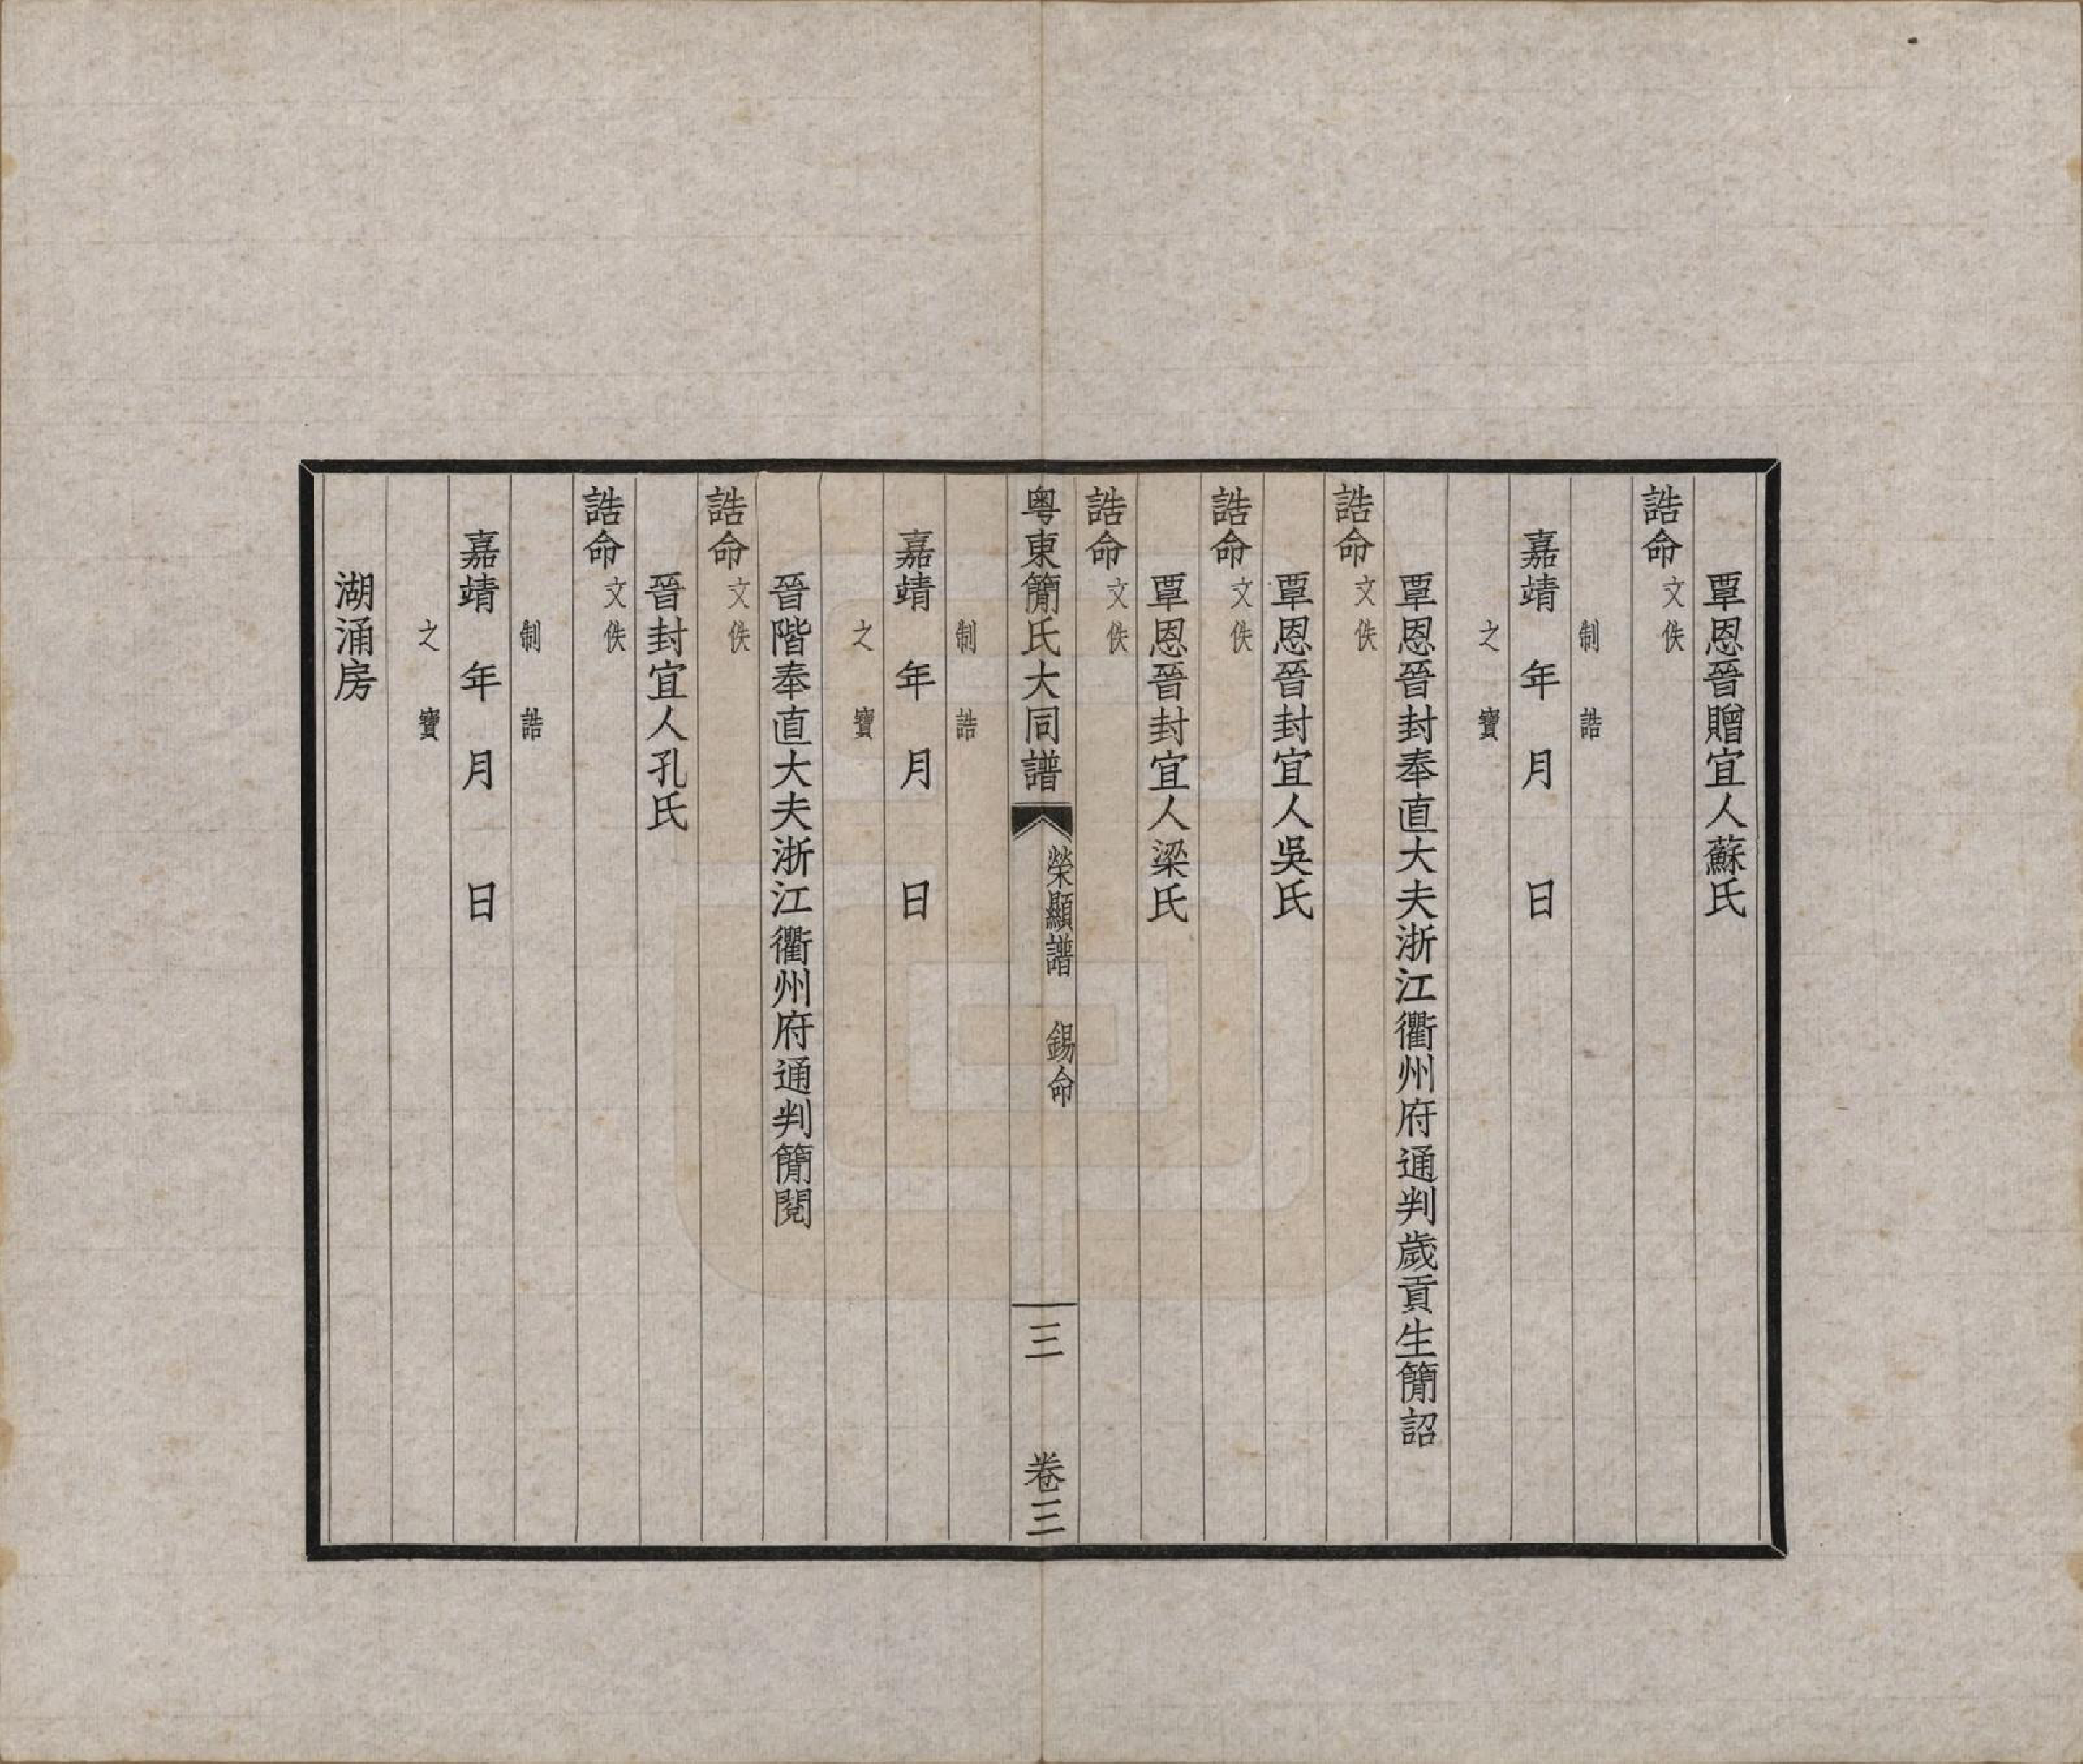 覃恩晉贈宜人蘇氏
誥命文佚
制誥
嘉靖 年 月 日
之寶
覃恩晉封奉直大夫浙江衢州府通判歲貢生簡詔
誥命文佚
覃恩晉封宜人吳氏
誥命文佚
覃恩晉封宜人梁氏
誥命文佚
粵東簡氏大同譜 榮顯譜 錫命 三 卷三
制誥
嘉靖 年 月 日
之寶
晉階奉直大夫浙江衢州府通判簡閱
誥命文佚
晉封宜人孔氏
誥命文佚
制誥
嘉靖 年 月 日
之寶
湖涌房